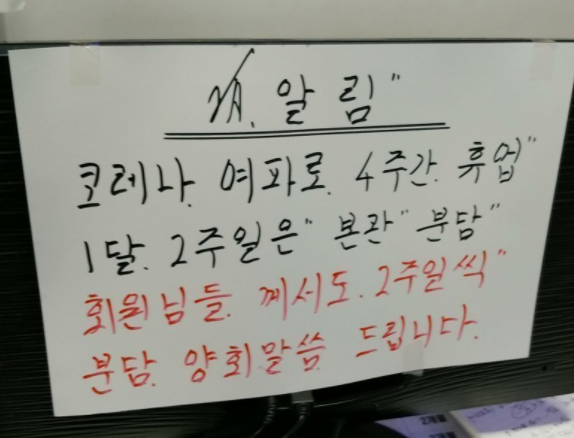 알림"
코레나. 여파로. 4주간. 휴업"
1달. 2주일은" 본관" 분담"
회원님들. 께서도. 2주일씩"
분담. 양회말씀 드립니다.